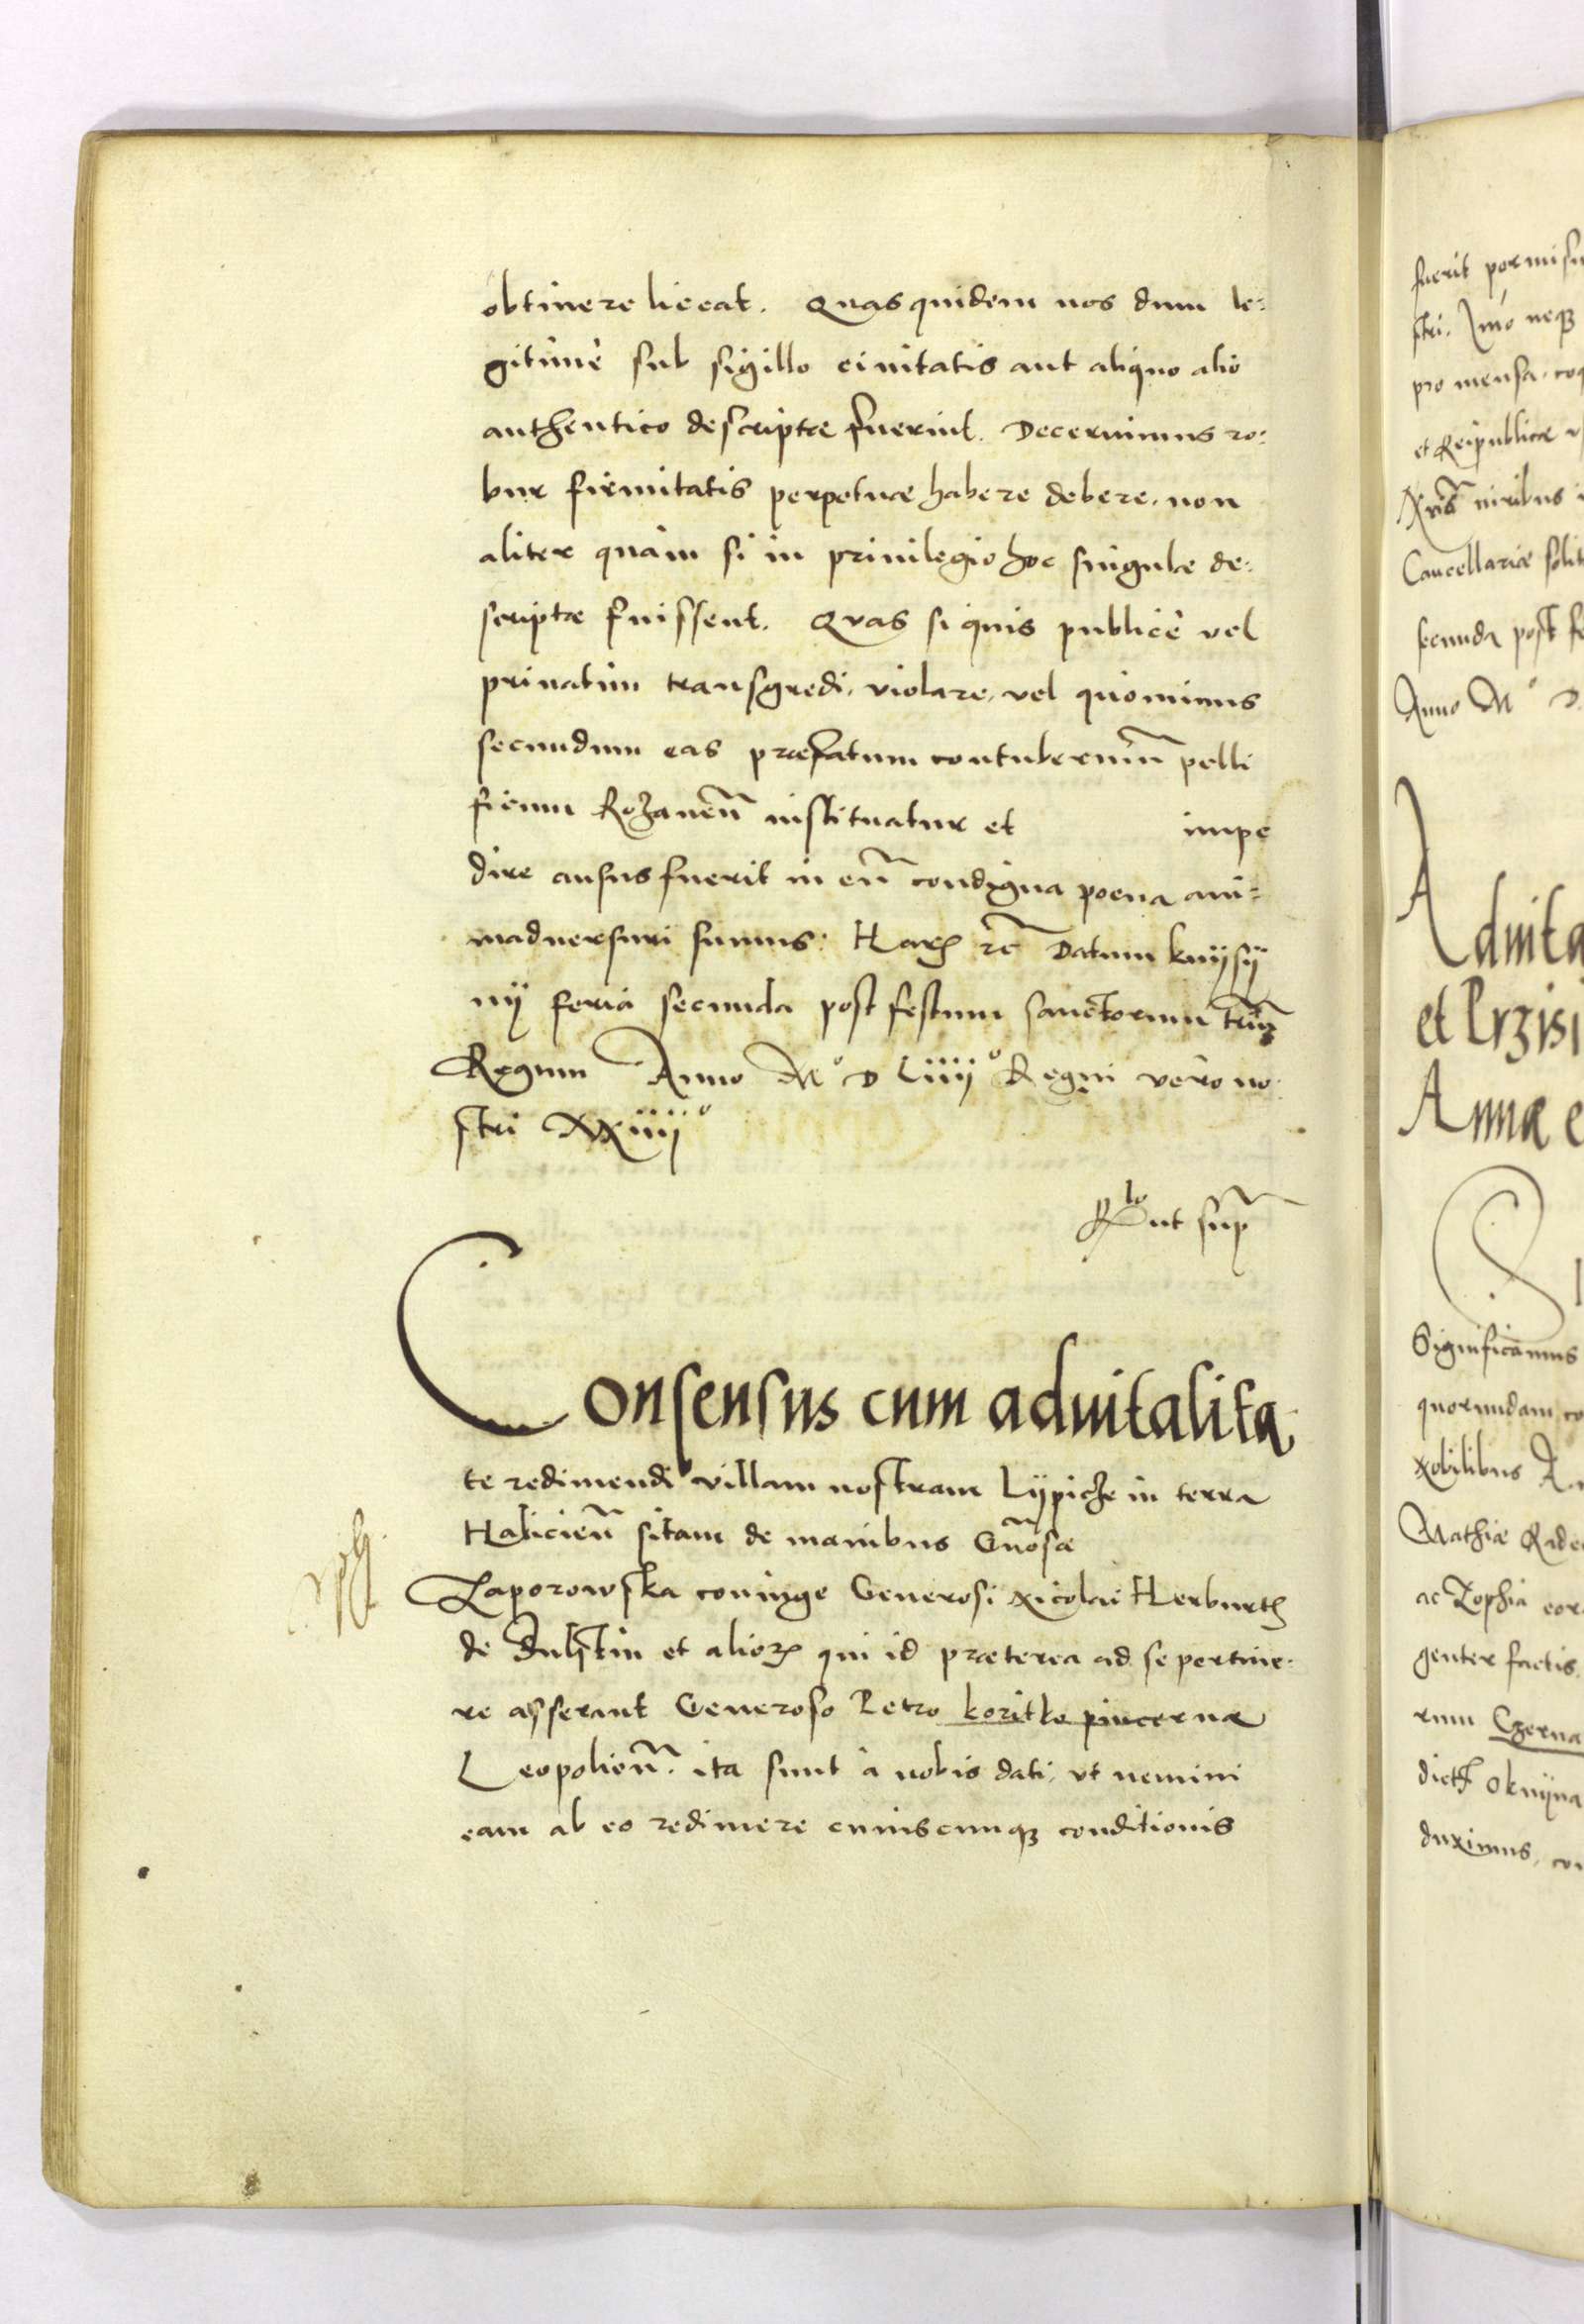 obtinere liceat. Quas quidem nos dum le:
gitimè sub sigillo ciuitatis aut aliquo alio
authentico descriptæ fuerint. Decernimus ro:
bur firmitatis perpetuæ habere debere, non
aliter quàm si in priuilegio hoc singulæ de:
scriptæ fuissent. Quas si quis publicè vel
priuatim transgredi, violare, vel quominus
secundum eas præfatum contuberniũ pelli
ficum Rozaneñ instituatur et impe
dire ausus fuerit in eũ condigna poena ani:
maduersuri sumus: Harꝝ rc̃ Datum knyſÿ
nÿ feria secunda post festum sanctorum triũ
Regum Anno Mº D Liiijº Regni vero no:
stri XXiiijº
Rlo ut sup̃
Consensus cum aduitalita
te redimendi villam nostram Lÿpicze in terra
Halicieñ sitam de manibus Gñosæ
Zaporowska coniuge Generosi Nicolai Herburth
de Fulstin et alioꝝ qui id præterea ad se pertine:
re asserant Generoso Petro koritko pincernæ
Leopolieñ. ita sunt à nobis dati, vt nemini
eam ab eo redimere cuiuscunqꝫ conditionis
fuerit permiſſu
stri. Imò neqꝫ
pro mensa
et Reipublicæ
Xñs̃ viribus
Cancellariæ solit
secunda post fe
Anno Mº D
Aduita
et Przisi
Annæ e
Significamus
quorundam co
Nobilibus A
Mathiæ Rade
ac Zophia eor
genter factis.
rum Czerna
dict oknÿna
duximus, con